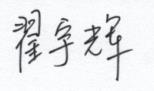 翟宇辉